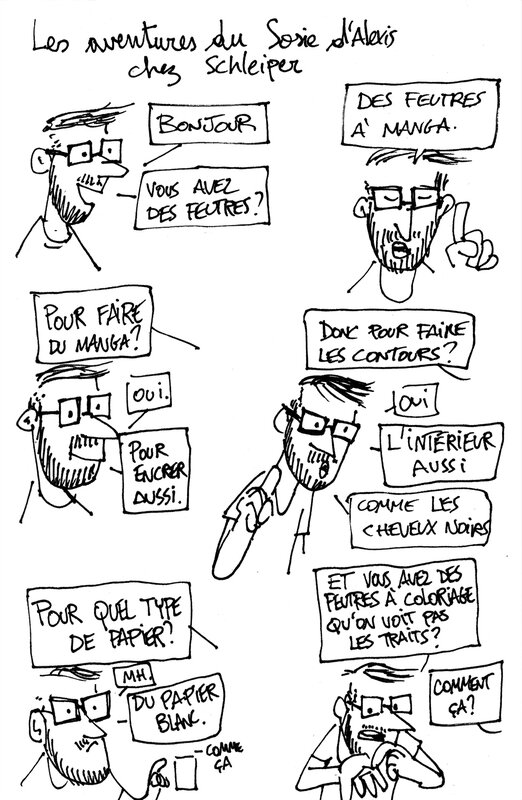 Les aventures du Sosie d'Alexis
chez Schleiper
BONJOUR
VOUS AVEZ
DES FEUTRES?
DES FEUTRES
À MANGA.
POUR FAIRE
DU MANGA?
OUI.
POUR
ENCRER
AUSSI.
DONC POUR FAIRE
LES CONTOURS?
OUI
L'INTÉRIEUR
AUSSI
COMME LES
CHEVEUX NOIRS
POUR QUEL TYPE
DE PAPIER?
MH.
DU PAPIER
BLANC.
COMME
ÇA
ET VOUS AVEZ DES
FEUTRES À COLORIAGE
QU'ON VOIT PAS
LES TRAITS?
COMMENT
ÇA?